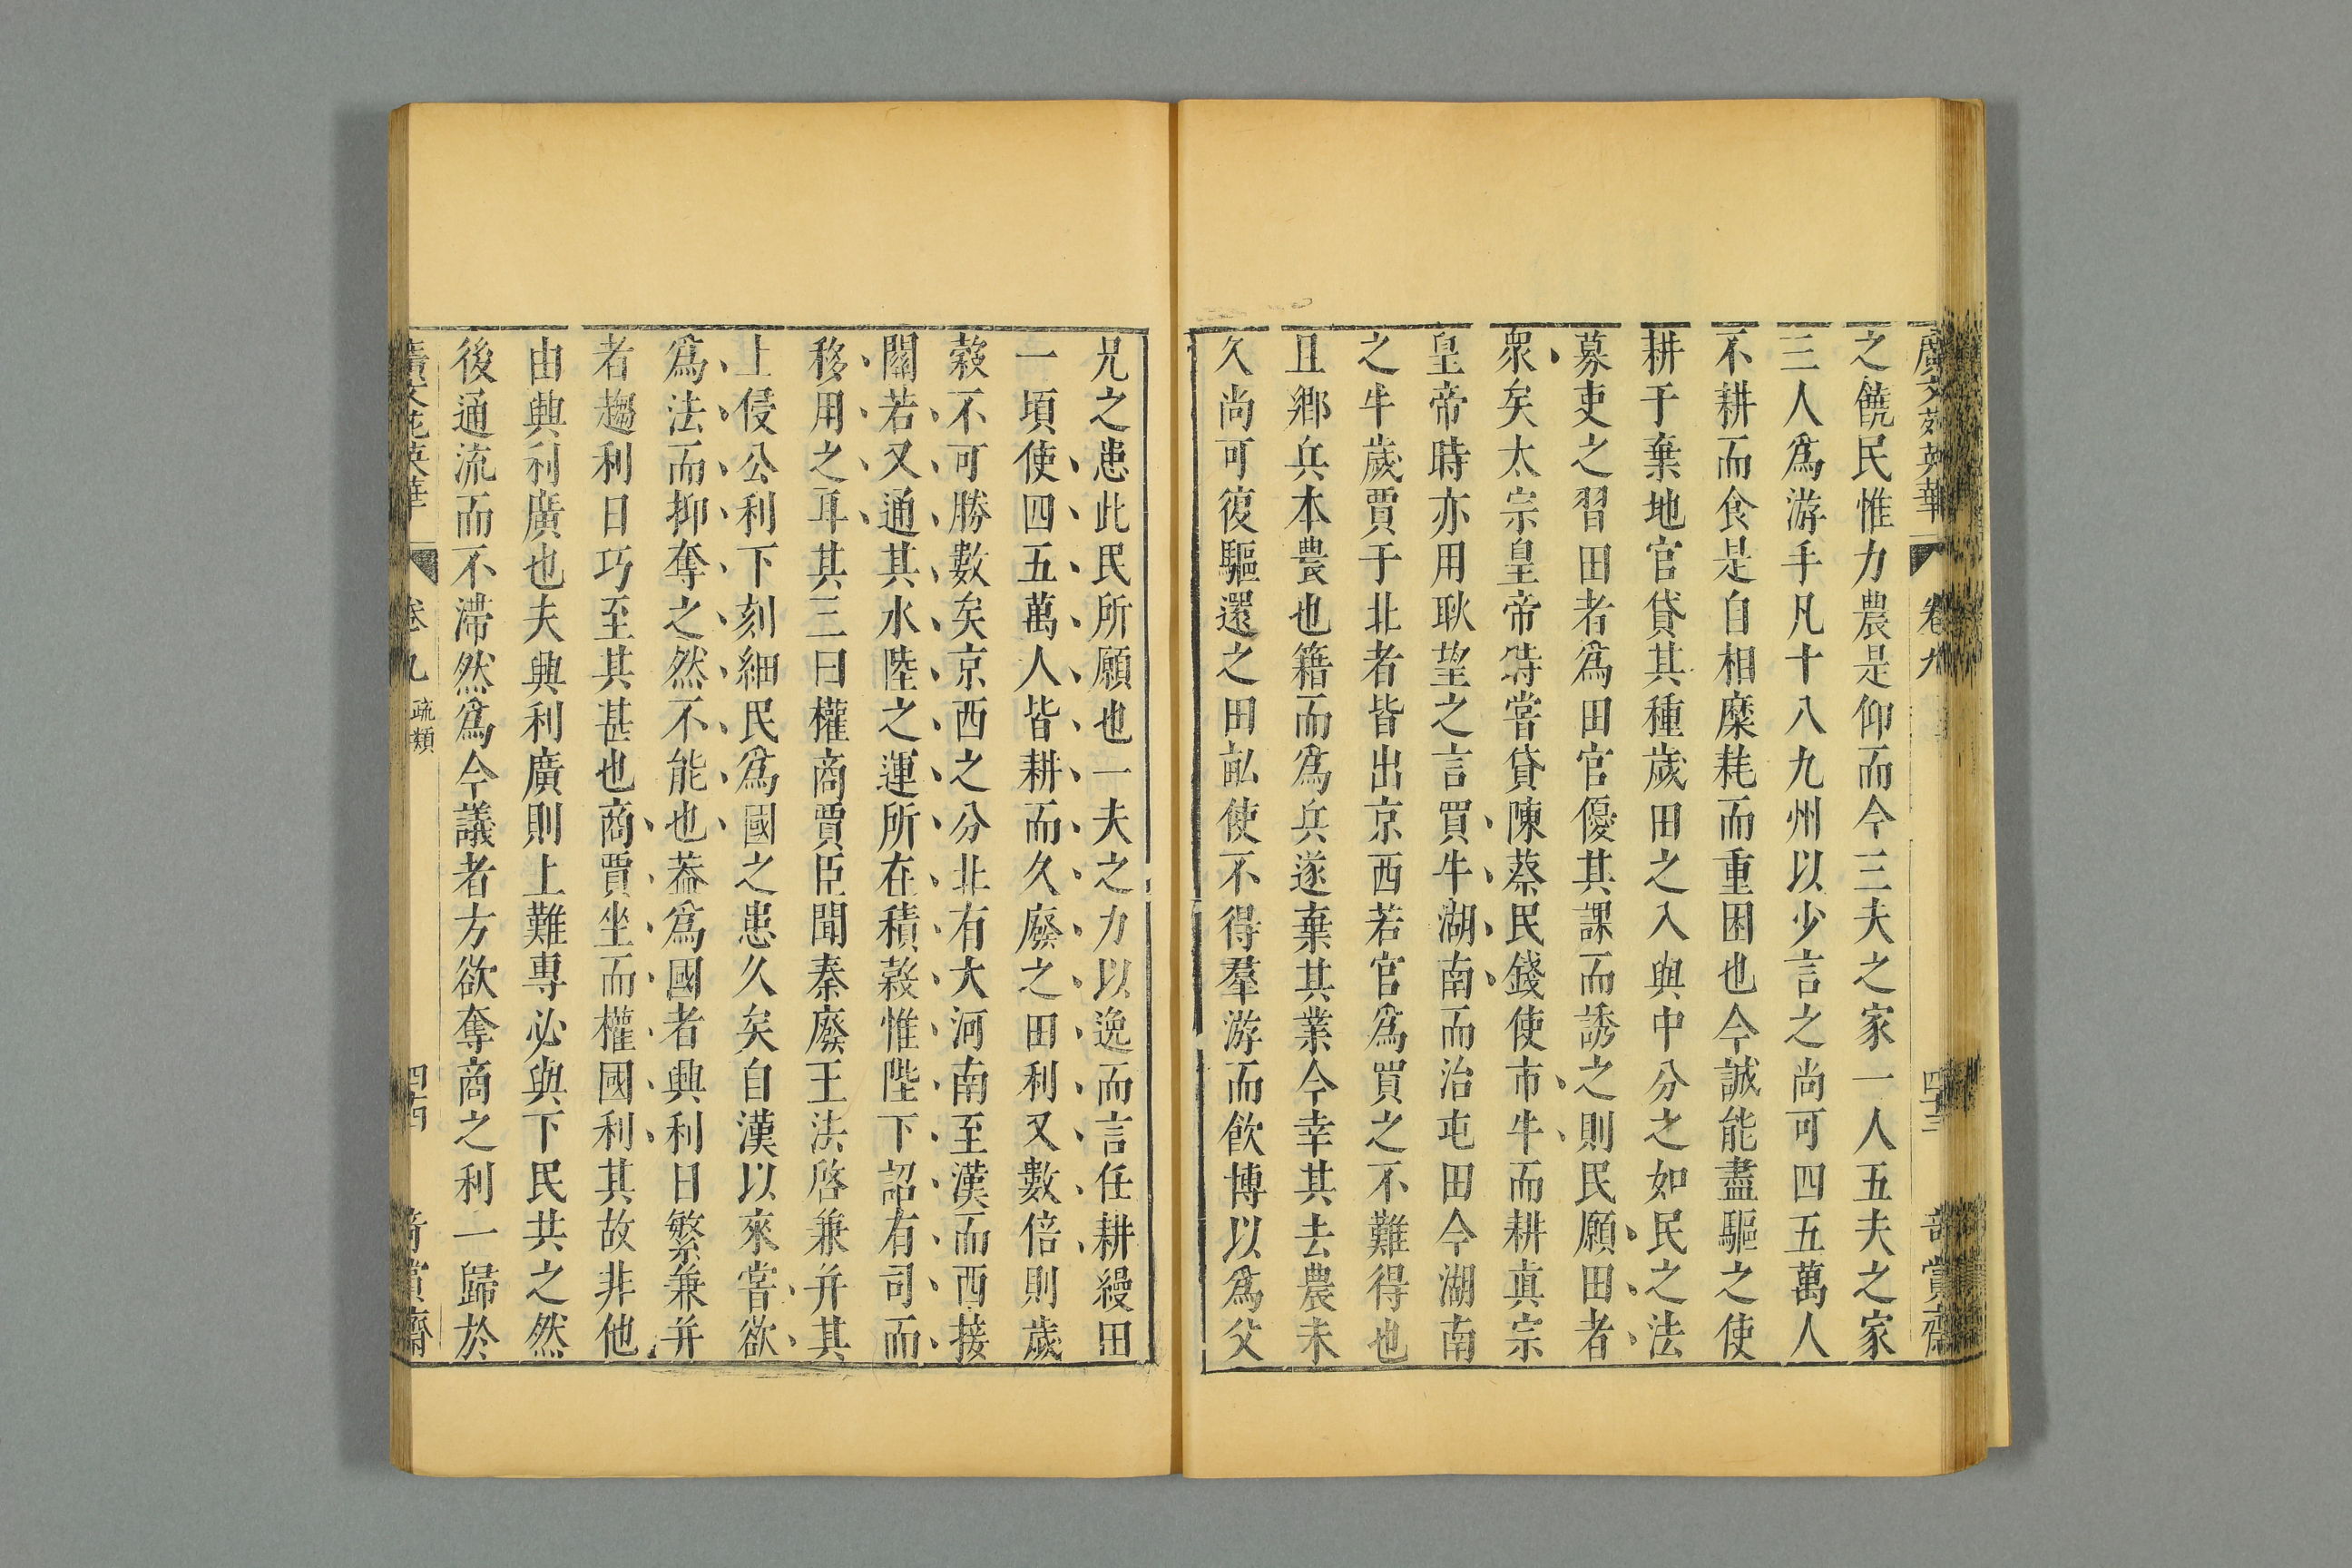 廣文苑英華 卷九 四十三 奇賞齋
之饒民惟力農是仰而今三夫之家一人五夫之家
三人爲游手凡十八九州以少言之尚可四五萬人
不耕而食是自相糜耗而重困也今誠能盡驅之使
耕于棄地官貸其種歲田之入與中分之如民之法
募吏之習田者爲田官優其課而誘之則民願田者
衆矣太宗皇帝時嘗貸陳蔡民錢使市牛而耕真宗
皇帝時亦用耿望之言買牛湖南而治屯田今湖南
之牛歲賈于北者皆出京西若官爲買之不難得也
且鄉兵本農也籍而爲兵遂棄其業今幸其去農未
久尚可復驅還之田畝使不得羣游而飲博以爲父
兄之患此民所願也一夫之力以逸而言任耕縵田
一頃使四五萬人皆耕而久廢之田利又數倍則歲
穀不可勝數矣京西之分北有大河南至漢而西接
關若又通其水陸之運所在積穀惟陛下詔有司而
移用之耳其三曰權商賈臣聞秦廢王法啓兼并其
上侵公利下刻細民爲國之患久矣自漢以來嘗欲
爲法而抑奪之然不能也葢爲國者興利日繁兼并
者趨利日巧至其甚也商賈坐而權國利其故非他
由興利廣也夫興利廣則上難專必與下民共之然
後通流而不滯然爲今議者方欲奪商之利一歸於
廣文苑英華 卷九 疏類 四十四 奇賞齋